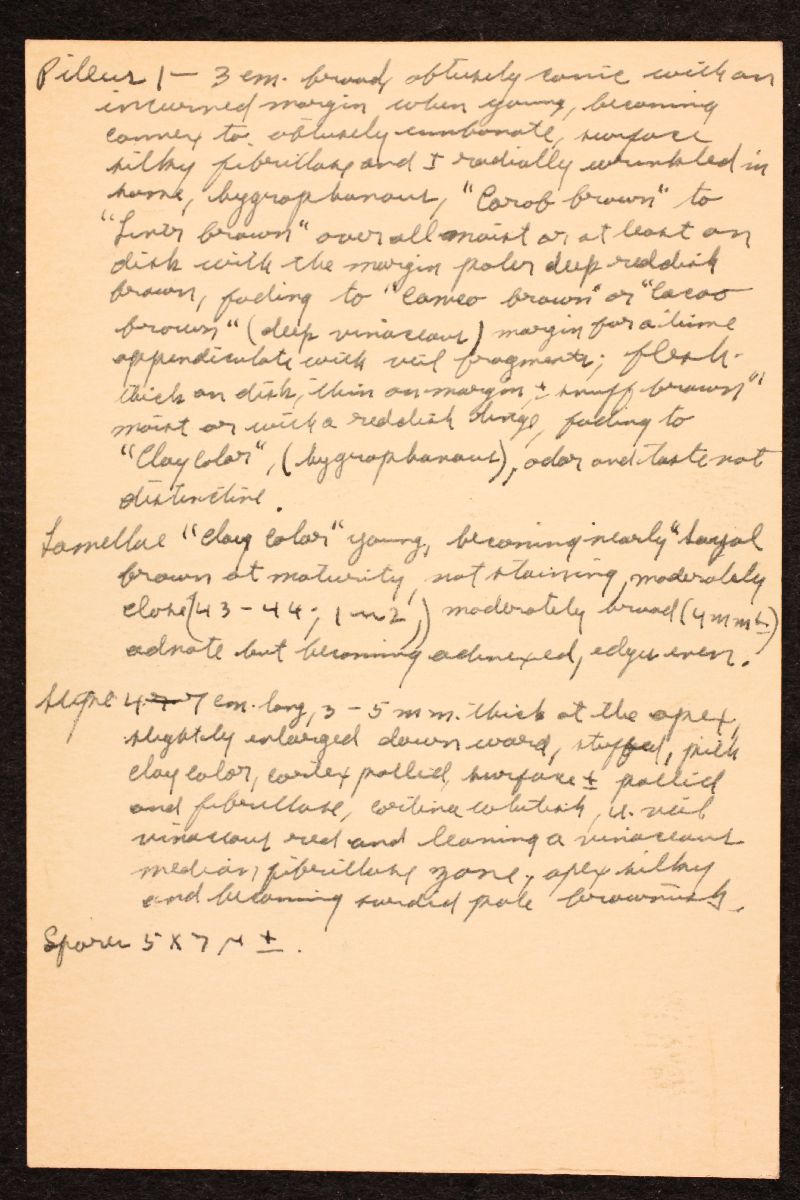 Pileus 1 – 3 cm. broad, obtusely conic with an
incurved margin when young, becoming
convex to obtusely umbonate, surface
silky fibrillose and ± radially wrinkled in
some, hygrophanous, "Carob brown" to
"Liver brown" over all moist or at least on
disk with the margin paler deep reddish
brown, fading to "Cameo brown" or "Cacao
brown" (deep vinaceous) margin for a time
appendiculate with veil fragments; flesh
thick on disk, thin on margin, ± snuff brown"
moist or with a reddish tinge, fading to
"Clay color", (hygrophanous), odor and taste not
distinctive.
Lamellae "Clay Color" young, becoming nearly "Sayal
brown at maturity, not staining, moderately
close (43 – 44; 1 – 2,) moderately broad (4 mm ±)
adnate but becoming adnexed, edges even.
Stipe 4 – 7 cm. long, 3 – 5 mm. thick at the apex,
slightly enlarged downward, stuffed, pith
clay color, cortex pallid, surface ± pallid
and fibrillose, cortina whitish, u. veil
vinaceous red and leaving a vinaceous
median fibrillose zone, apex silky
and becoming sordid pale brownish.
Spores 5 X 7 μ ±.